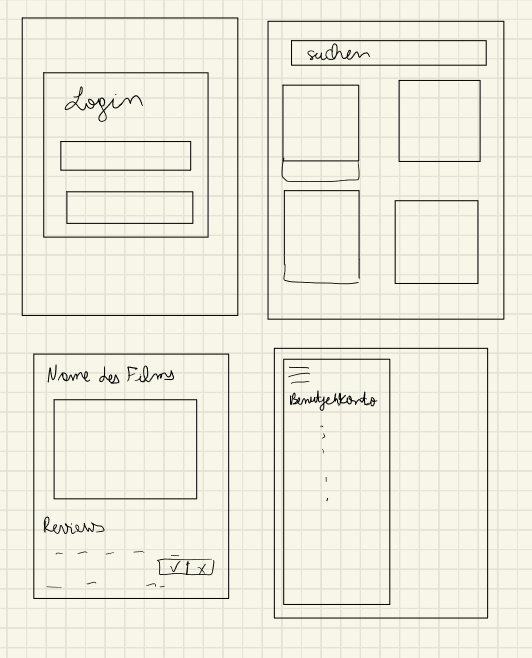 Login
suchen
Name des Films
Reviews
Benutzerkonto